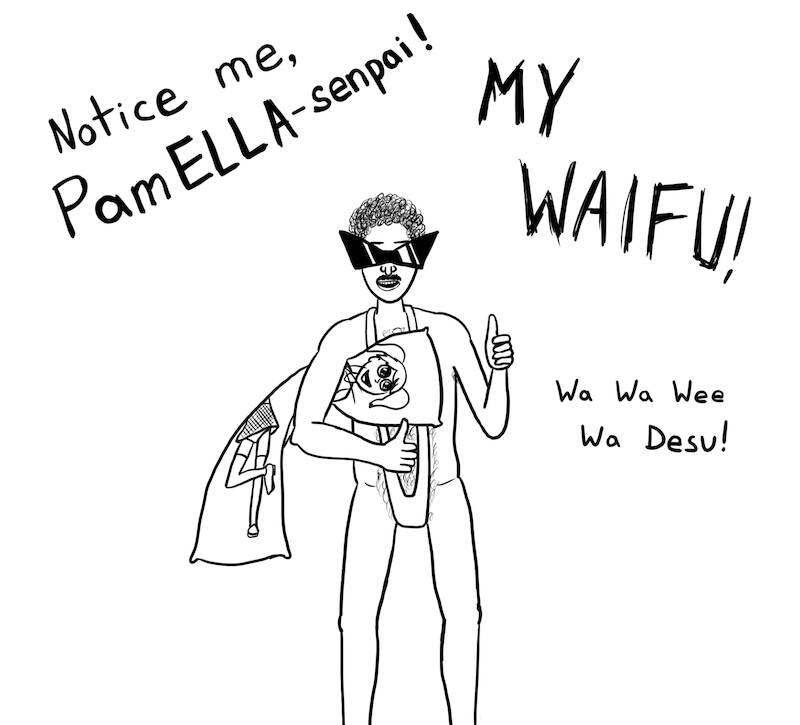 Notice me,
PamELLA-senpai!
MY
WAIFU!
Wa Wa Wee
Wa Desu!